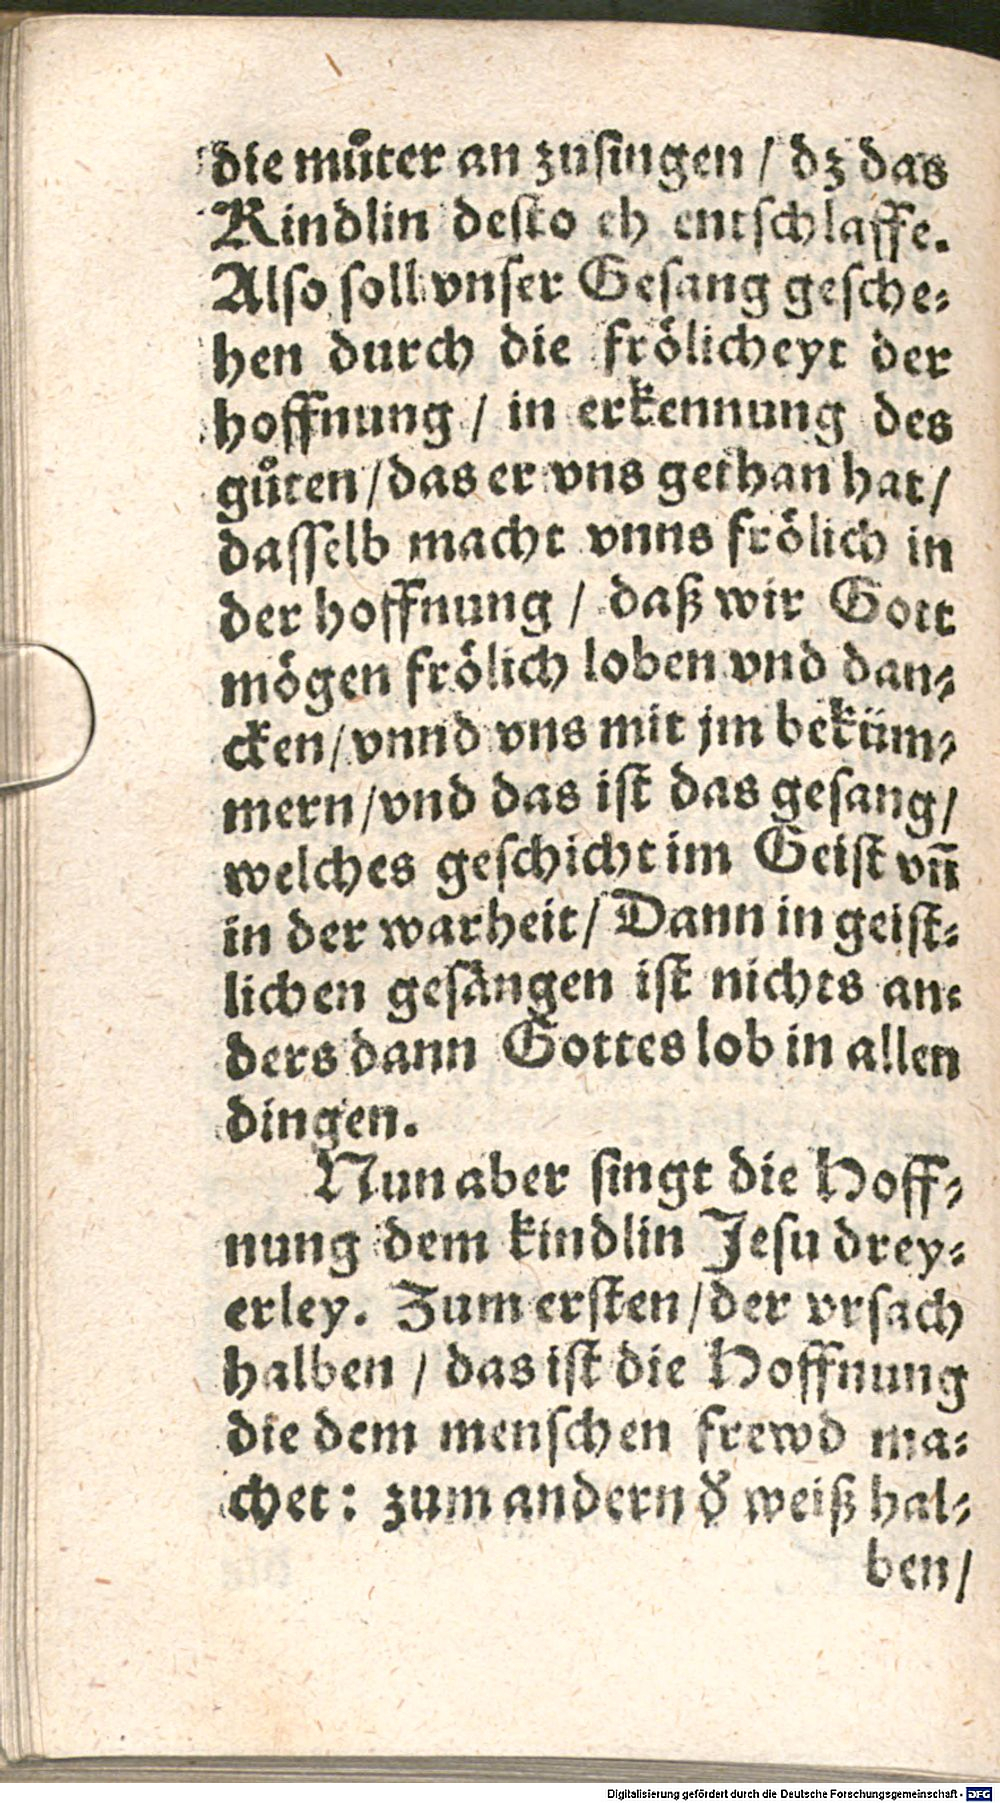 die muͤter an zusingen / dz das
Kindlin desto eh entschlaffe.
Also soll vnser Gesang gesche⸗
hen durch die froͤlicheyt der
hoffnung / in erkennung des
guͦten / das er vns gethan hat /
dasselb macht vnns froͤlich in
der hoffnung / daß wir Gott
moͤgen froͤlich loben vnd dan⸗
cken / vnnd vns mit jm bekuͤm⸗
mern / vnd das ist das gesang /
welches geschicht im Geist vñ
in der warheit / Dann in geist⸗
lichen gesaͤngen ist nichts an⸗
ders dann Gottes lob in allen
dingen.
Nun aber singt die Hoff⸗
nung dem kindlin Jesu drey⸗
erley. Zum ersten / der vrsach
halben / das ist die Hoffnung
die dem menschen frewd ma⸗
chet : zum andern dˀ weiß hal⸗
ben /
Digitalisierung gefördert durch die Deutsche Forschungsgemeinschaft - DFG